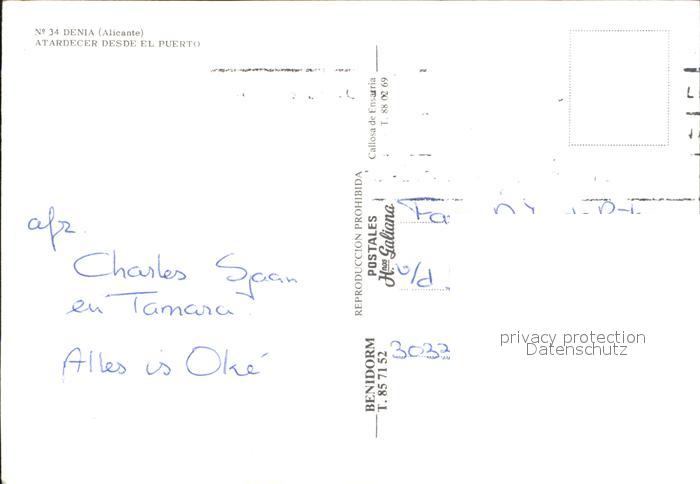 Nº 34 DENIA (Alicante)
ATARDECER DESDE EL PUERTO
afz.
Charles Spaan
en Tamara.
Alles is Oké
Callosa de Ensarria
T. 88 02 69
REPRODUCCION PROHIBIDA
POSTALES
Hnos Galiana
BENIDORM
T. 85 71 52
Fa
v/d
3032
privacy protection
Datenschutz